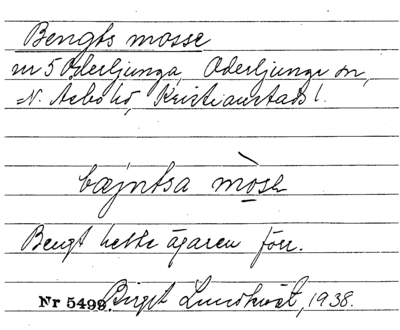 Bengts mosse
nr 5 Oderljunga, Oderljunga sn,
N. Åsbo hd, Kristianstads l.
bæjntsa mòsɐ
Bengt hette ägaren förr.
Nr 5499. Birgit Lundkvist, 1938.